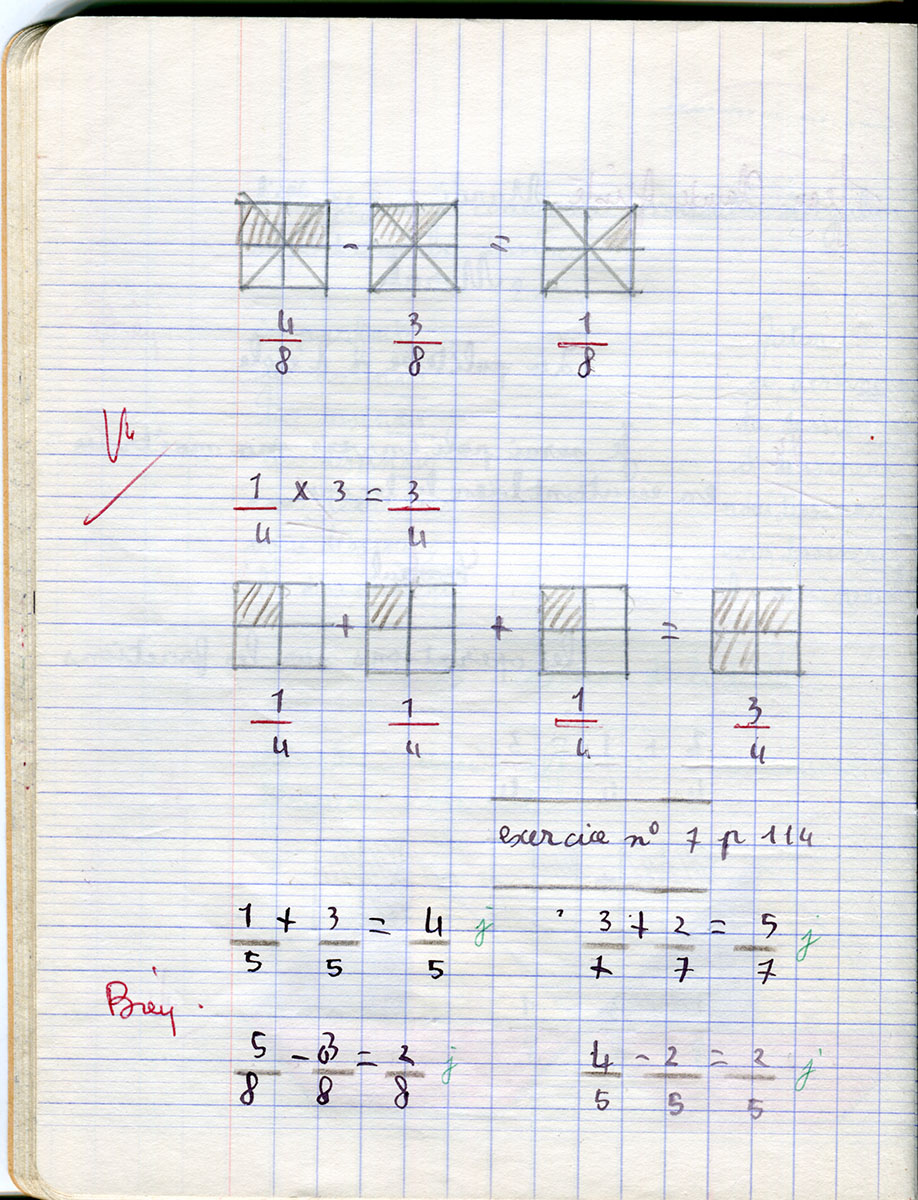 - =
4/8 3/8 1/8
Vu
1/4 x 3 = 3/4
+ + =
1/4 1/4 1/4 3/4
exercice n° 7 p 114
1/5 + 3/5 = 4/5 j 3/7 + 2/7 = 5/7 j
Bien
5/8 - 3/8 = 2/8 j 4/5 - 2/5 = 2/5 j